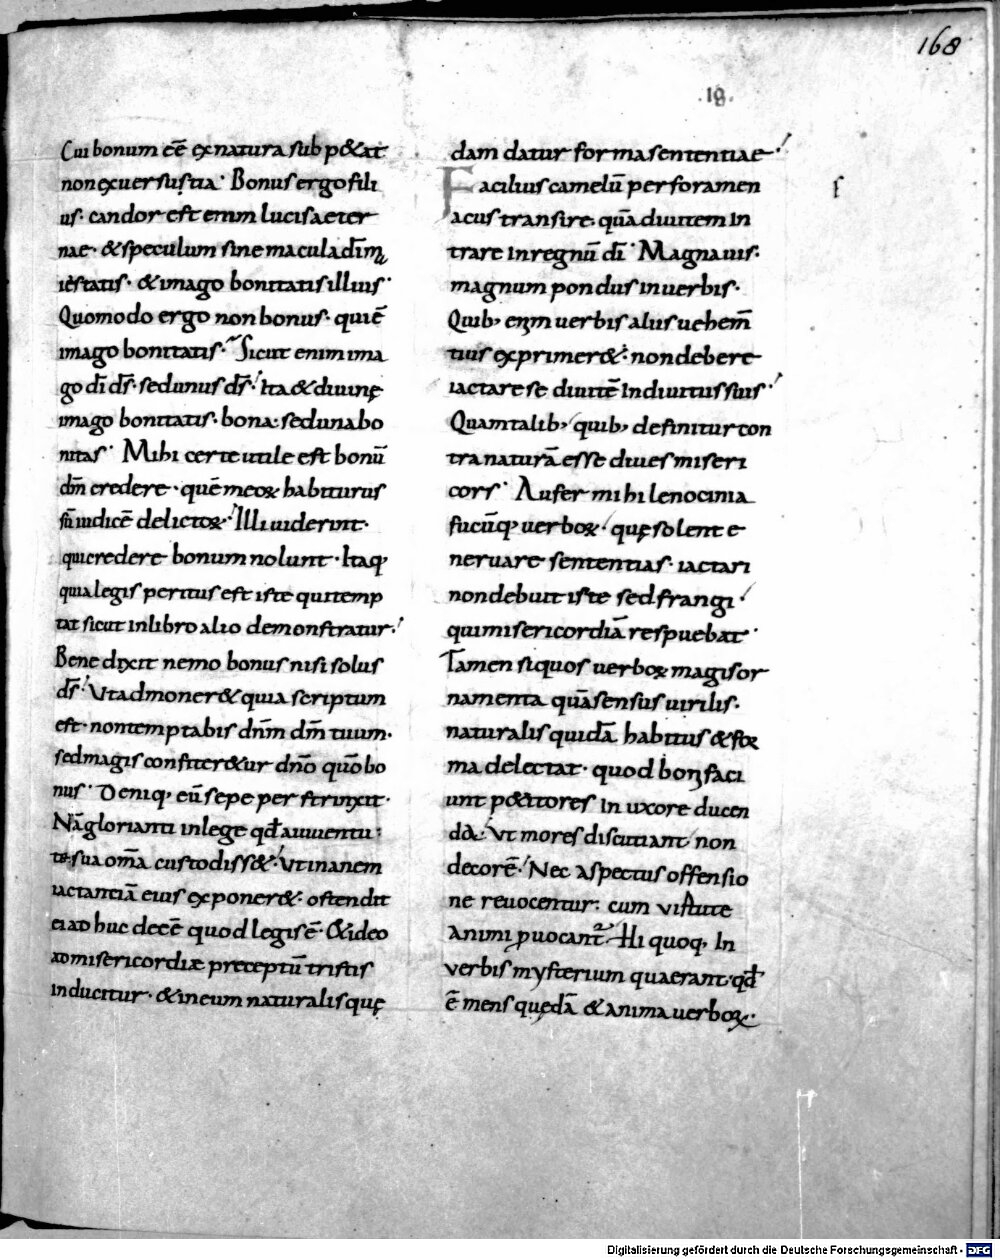 168
.19.
Cui bonum eē ex natura subp&at
non ex uersutia. Bonus ergo fili
us. candor est enim lucis aeter
nae. & speculum sine macula dīm
iestatis. & imago bonitatis illius.
Quomodo ergo non bonus. qui ē
imago bonitatis. Sicut enim ima
go dī ds̄. sed unus ds̄. Ita & diuinę
imago bonitatis. bona: sed una bo
nitas. Mihi certe utile est bonū
dm̄ credere. quē meoꝝ habiturus
sū iudicē delictoꝝ. Illi uiderint.
qui credere bonum nolunt. Itaq,
quia legis peritus est iste qui temp
tat sicut in libro alio demonstratur.
Bene dixit nemo bonus nisi solus
ds̄. Vt admoner& quia scriptum
est. non temptabis dn̄m dm̄ tuum.
sed magis confiter&ur dn̄o quō bo
nus. Deniq, eū sepe perstrinxit.
Nā glorianti in lege qđ a iuuentu
te sua om̄a custodiss&. Vt inanem
iactantiā eius exponer&. ostendit
ei adhuc deē ē quod legis ē. & ideo
ad misericordiæ preceptū tristis
inducitur. & in eum naturalis quę
dam datur forma sententiae.
Facilius camelū per foramen
acus transire. quā diuitem in
trare in regnū dī. Magna uis.
magnum pondus in uerbis.
Quib, enim uerbis alius uehem̄
tius exprimer&. non debere
iactare se diuitē in diuitiis suis.
Quam talib, quib, definitur con
tra naturā esse diues miseri
cors. Aufer mihi lenocinia
fucūq, uerboꝝ. quę solent e
neruare sententias. iactari
non debuit iste sed frangi.
qui misericordiā respuebat.
Tamen siquos uerboꝝ magis or
namenta quā sensus uirilis.
naturalis quidā habitus & foꝝ
ma delectat. quod boni faci
unt p&itores in uxore ducen
da. Vt mores discutiant non
decorē. Nec aspectus offensio
ne reuocentur. cum virtute
animi ꝓuocant̄. Hi quoq, in
verbis mysterium quaerant. qđ
ē mens quędā & anima uerboꝝ.
f
Digitalisierung gefördert durch die Deutsche Forschungsgemeinschaft - DFG